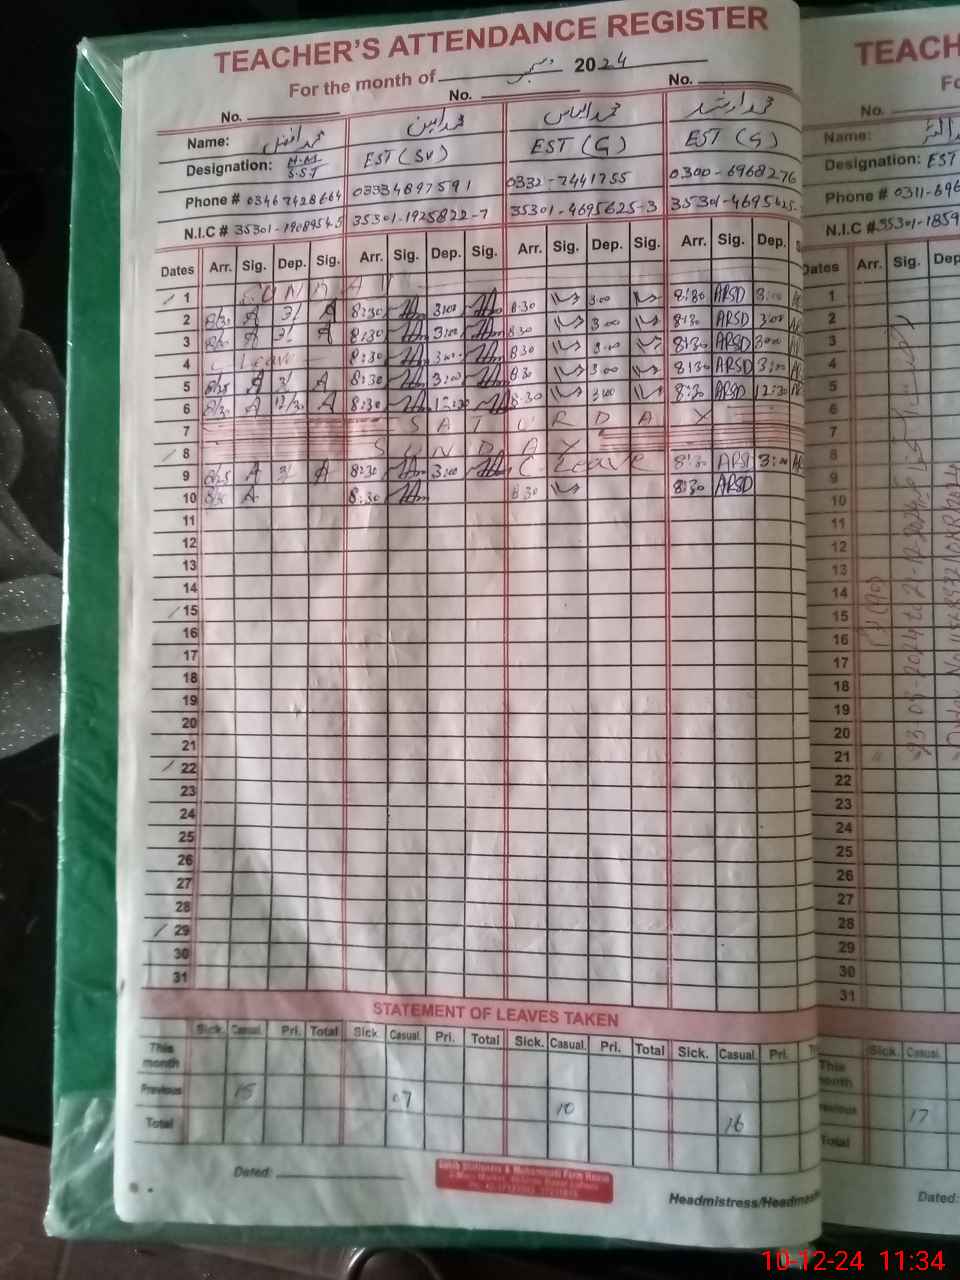 TEACHER'S ATTENDANCE REGISTER
For the month of دسمبر 2024
No. No. No.
Name: محمد افضل محمد امین محمد الیاس محمد ارشد
Designation: S.S.T EST (SV) EST (G) EST (G)
Phone # 03467428664 03334897591 0332-7441755 0300-6968276
N.I.C # 35301-1908954-5 35301-1925822-7 35301-4695625-3 35301-4695625-
Dates Arr. Sig. Dep. Sig. Arr. Sig. Dep. Sig. Arr. Sig. Dep. Sig. Arr. Sig. Dep.
1 SUNDAY
2 8/30 A 3/ A 8:30 3:00 8:30 3:00 8:30 ARSD 3:00
3 8/30 A 3/ A 8:30 3:00 8:30 3:00 8:30 ARSD 3:00
4 C Leave 8:30 3:00 8:30 3:00 8:30 ARSD 3:00
5 8/25 A 3/ A 8:30 3:00 8:30 3:00 8:30 ARSD 3:00
6 8/30 A 12/30 A 8:30 12:30 8:30 3:00 8:30 ARSD 12:30
7 SATURDAY
8 SUNDAY
9 8/25 A 3/ A 8:30 3:00 C-Leave 8:30 ARSD 3:00
10 8/30 A 8:30 8:30 8:30 ARSD
11
12
13
14
15
16
17
18
19
20
21
22
23
24
25
26
27
28
29
30
31
STATEMENT OF LEAVES TAKEN
Sick. Casual. Pri. Total Sick. Casual. Pri. Total Sick. Casual. Pri. Total Sick. Casual. Pri.
This month
Previous 15 07 10 16
Total
Dated:
Headmistress/Headmas
TEACH
Fo
No.
Name:
Designation: EST
Phone # 0311-696
N.I.C #.35301-1859
Dates Arr. Sig. Dep
1
2
3
4
5
6
7
8
9
10
11
12
13
14
15
16
17
18
19
20
21
22
23
24
25
26
27
28
29
30
31
Sick. Casual.
This month
Previous 17
Total
Dated:
10-12-24 11:34